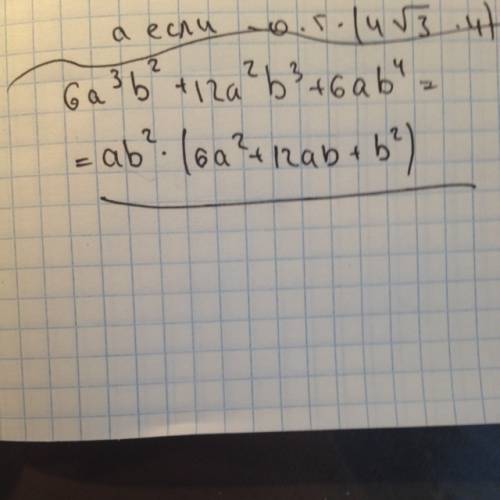 а если -0.5·(4√3·4)
6a³b² + 12a²b³ + 6ab⁴ =
= ab²·(6a² + 12ab + b²)